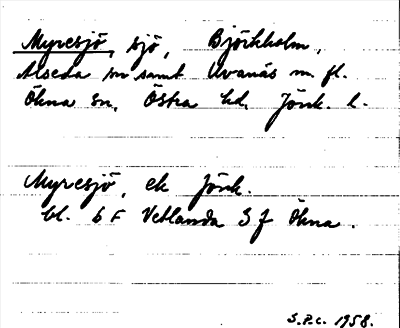 Myresjö, sjö, Björkholm,
Alseda sn samt Uvanäs m. fl.
Ökna sn, Östra hd, Jönk. l.
Myresjö, ek Jönk.
bl. 6 F Vetlanda S f Ökna.
S.P.C. 1958.